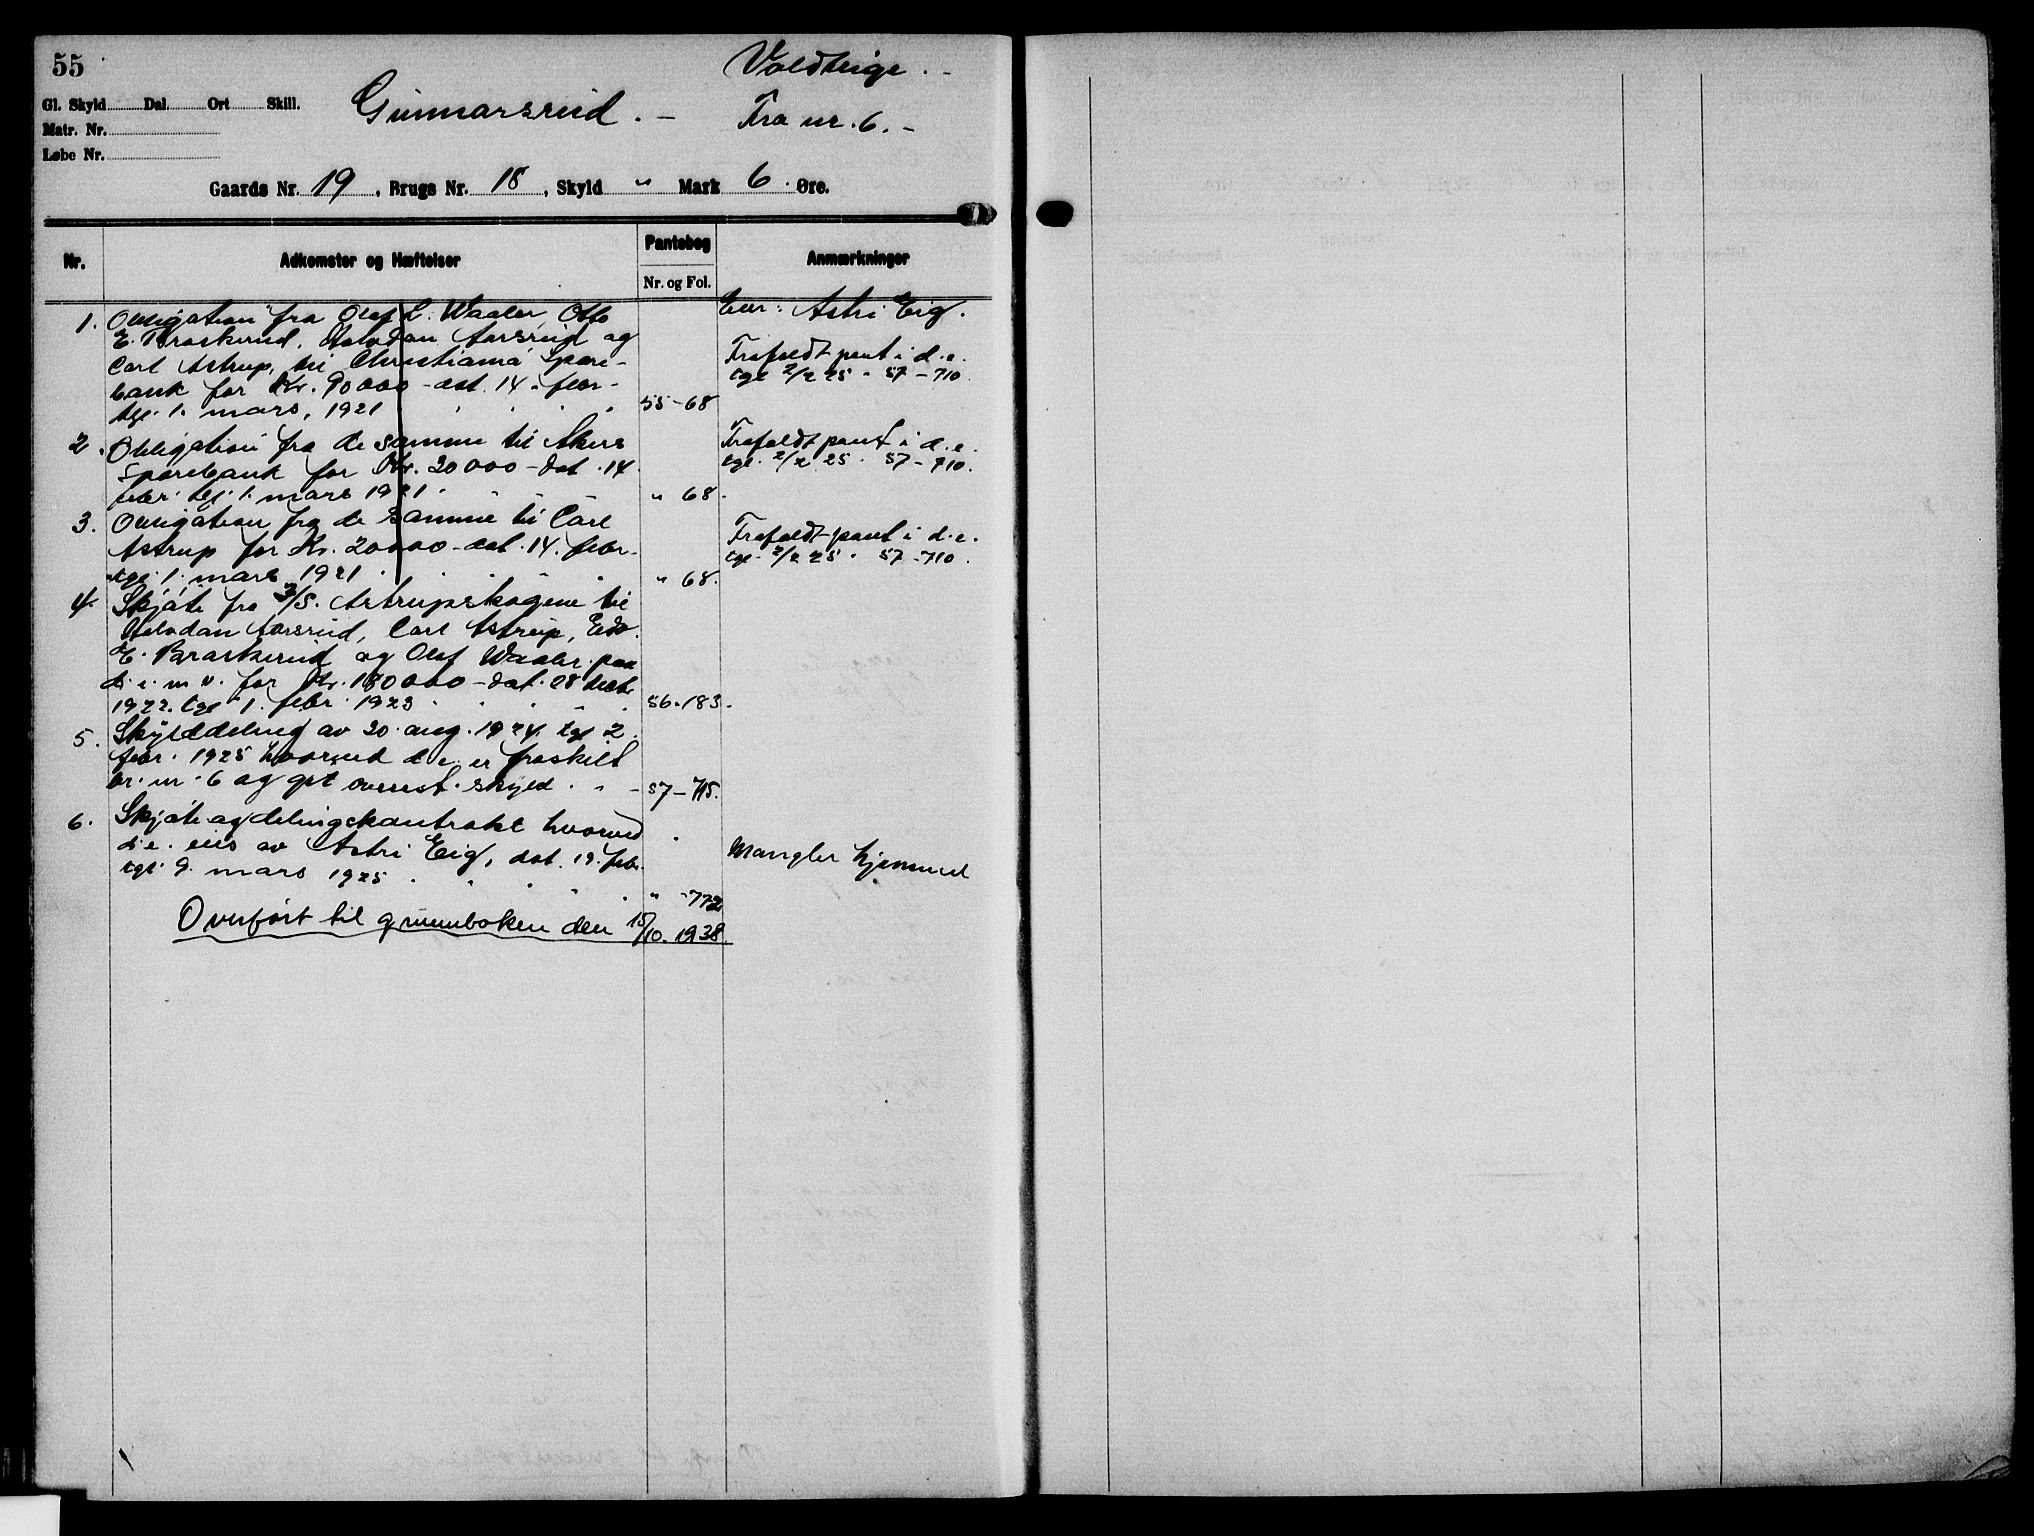 55
Voldteige . -
Gl. Skyld Dal. Ort Skill.
Gunnarsrud . -
Matr. Nr.
Fra nr. 6. -
Løbe Nr.
Gaards Nr. 19, Brugs Nr. 18, Skyld " Mark 6 Øre.
Nr. Adkomster og Hæftelser Pantebog Anmærkninger
Nr. og Fol.
Eier: Astri Eig.
1. Obligation fra Olaf L. Waaler, Otto
E. Braskerud, Halvdan Aarsrud og
Carl Astrup, til Christiania Spare-
bank for Kr. 90000 - dat. 14. febr-
tgl. 1. mars, 1921 55-68
Frafaldt pant i d.e.
tgl 2/2 25 . 57-710.
2. Obligation fra de samme til Akers
Sparebank for Kr. 20000 - dat. 14
febr. tgl. 1. mars 1921. " 68.
Frafaldt pant i d.e.
tgl. 2/2 25 . 57-710.
3. Obligation fra de samme til Carl
Astrup for Kr. 20000 - dat. 14. febr-
tgl. 1. mars 1921 " 68.
Frafaldt pant i d.e.
tgl. 2/2 25 . 57-710.
4. Skjøte fra Astrupskogene til
Halvdan Aarsrud, Carl Astrup,
E. Braskerud og Olaf Waaler paa
d.e. m.v. for Kr. - dat. 28 decbr
1922. tgl 1. febr. 1923 56-183.
5. Skylddeling av 20. aug. 1924. tgl 2.
febr. 1925 hvorved d.e. er fraskilt
br. nr. 6 og git overst. skyld . 57-715.
6. Skjøte og delingskontrakt hvorved
d.e. eies av Astri Eig, dat. 19. febr.
tgl. 9. mars 1925 " -772
Mangler hjemmel
Overført til grunnboken den 15/10. 1938.